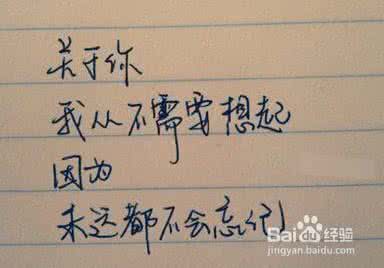 关于你
我从不需要想起
因为
永远都不会忘记
Bai 经验
jingyan.baidu.com